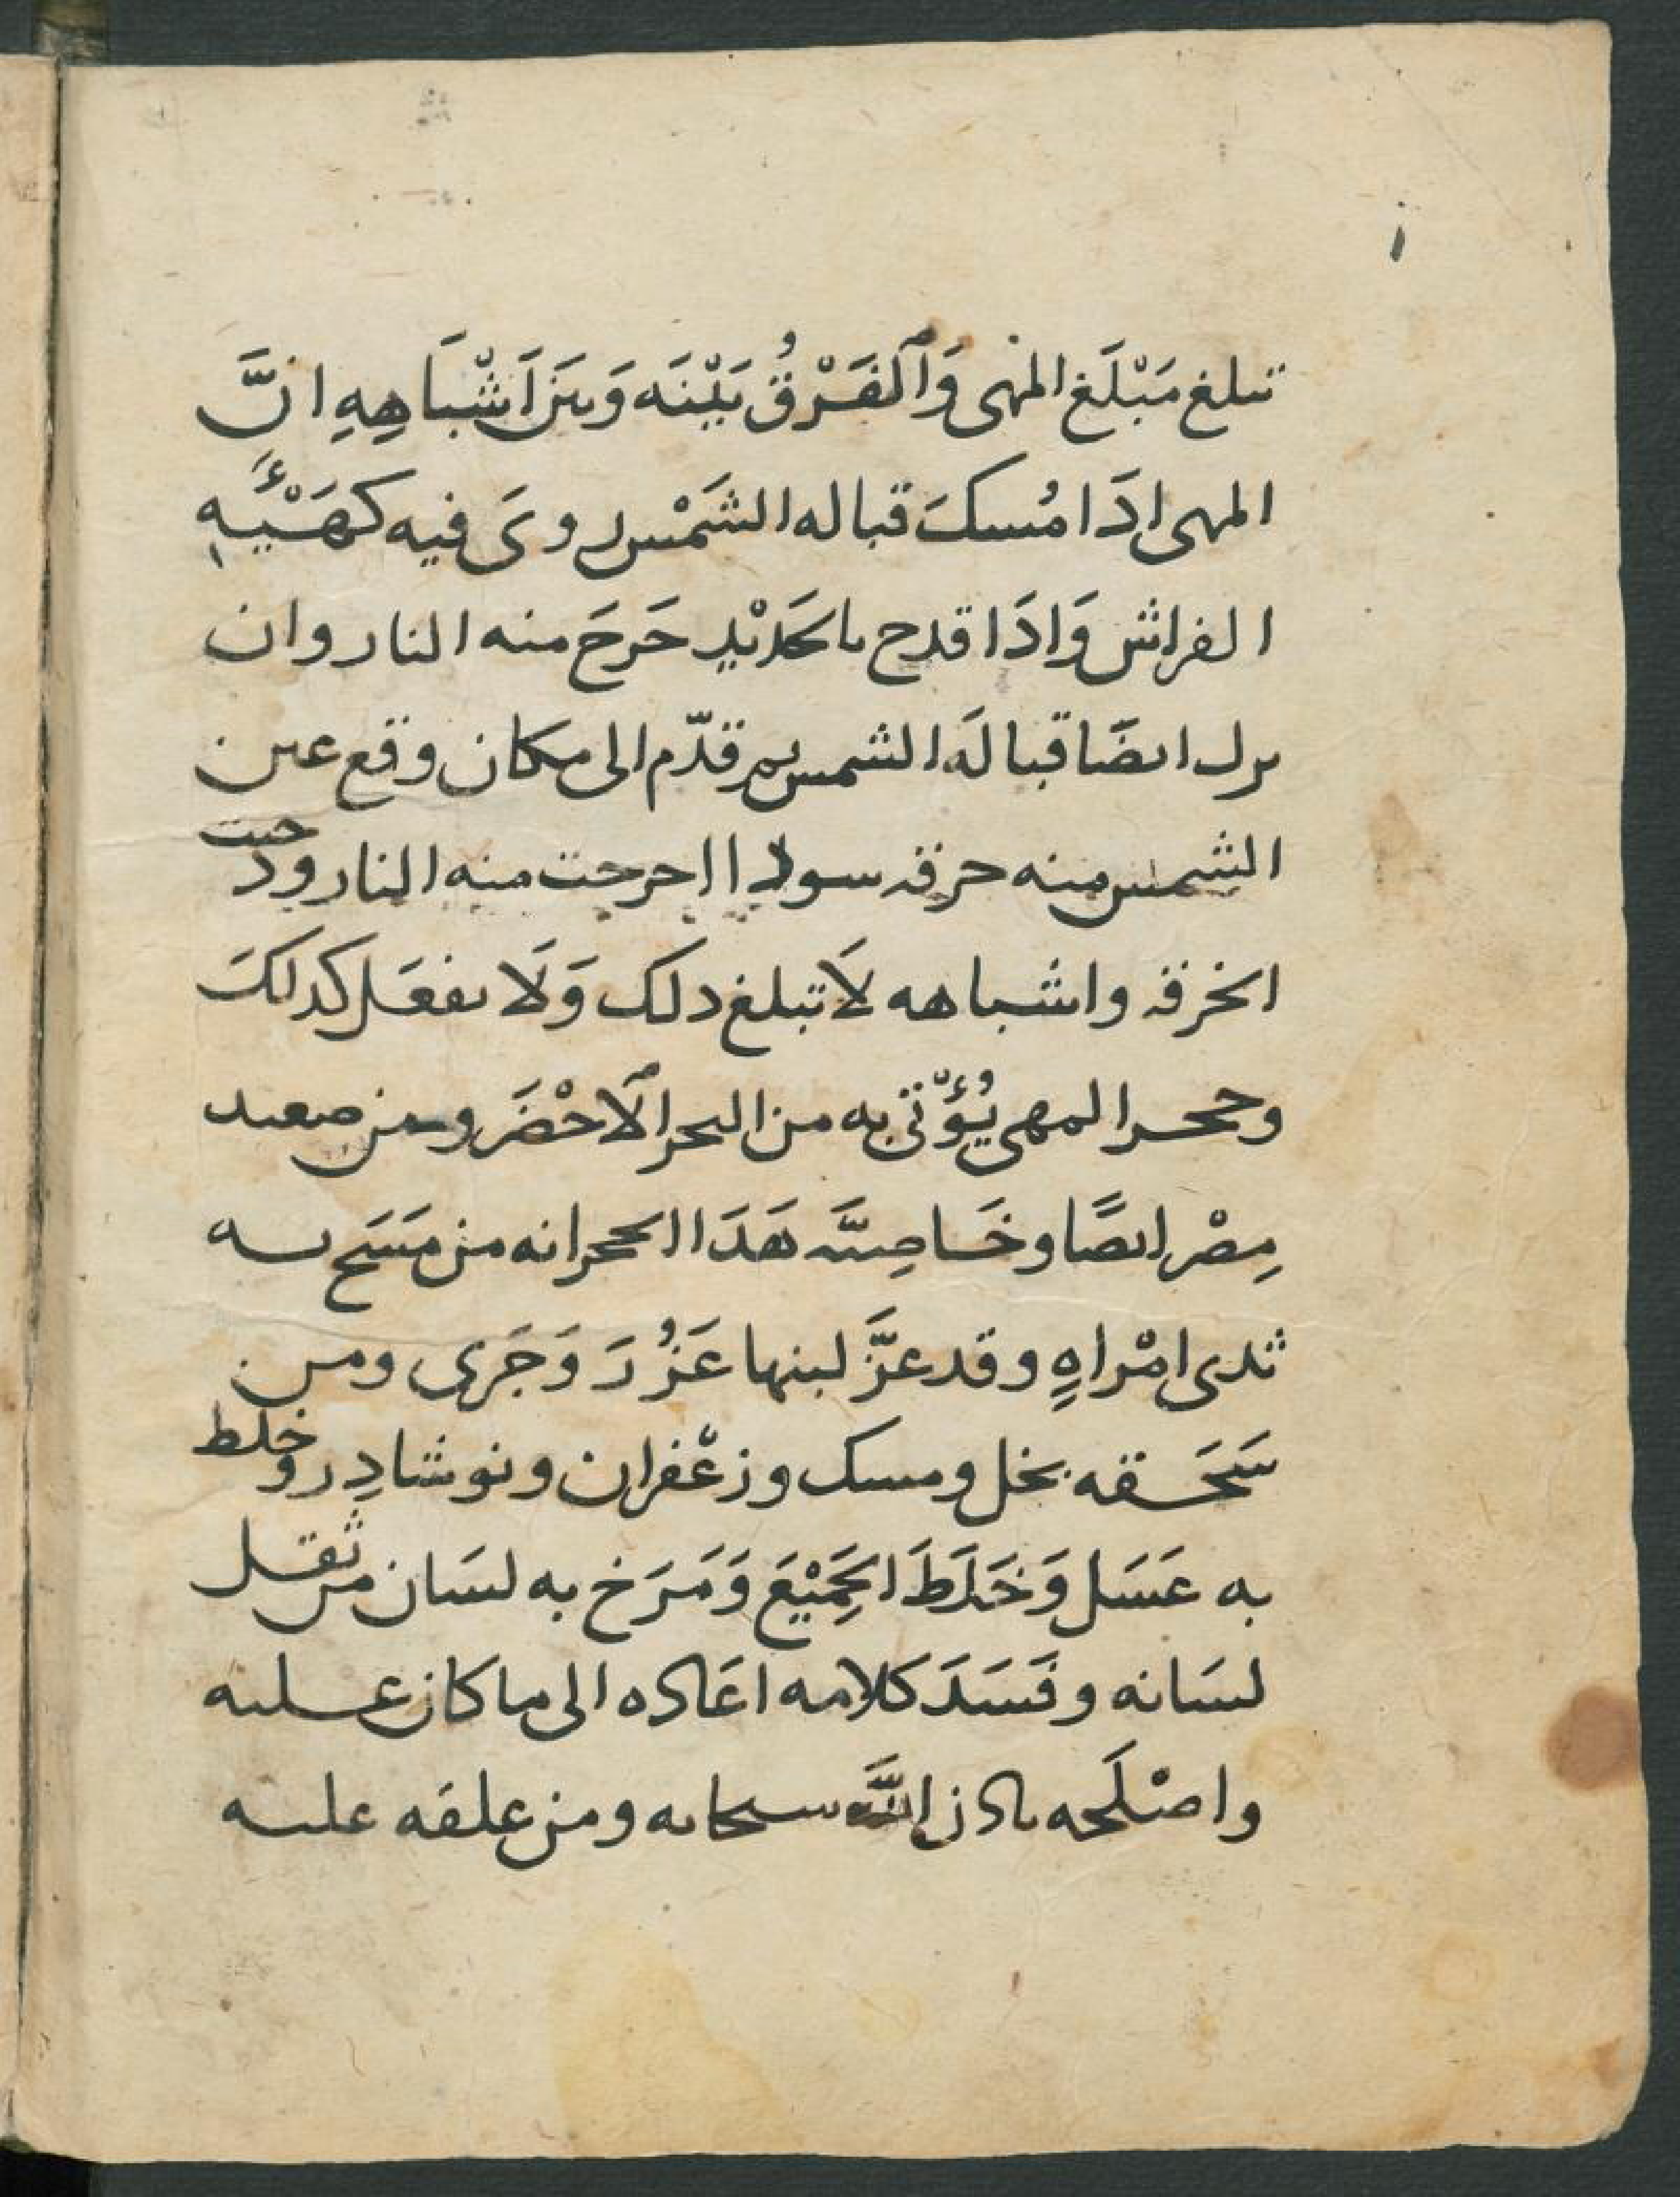 تبلغ مَبْلَغ المهى وَٱلفَرْقُ بَيْنَه وَبين اَشْبَاهِهِ انَّ
المهى ادَا مُسكَ قباله الشَمْس روىَ فيه كهَيْئَه
الفراش وَادَا قدح بالحَديْد خَرجَ منه النار وان
ترك ايضَا قبالَه الشمس ثم قدّم الى مكان وقع عين
الشمس منه خرقه سودا اخرجت منه النار ودخنت
الخرقه واشباهه لاَ تبلغ دلك وَلَا يفعَل كدلكَ
وحجر المهى يُؤْتى به من البحر ٱلاخْضَر ومن صعيد
مِصْر ايضًا وخَاصِيَّه هَدَا الحجر انه من مَسَح به
ثدى امْراهٍ وقد عزَّ لبنها غَزُرَ وَجَرى ومن
سَحَقه بخل ومسك وزعْفران ونوشادِر وخلط
به عَسَل وَخَلَطَ الجَمِيْعَ وَمَرَخ به لسَان من ثقل
لسَانه وفَسَدَ كلامه اعَاده الى ما كان عليه
واصْلَحه بادن اللَّه سبحانه ومن علقه عليه